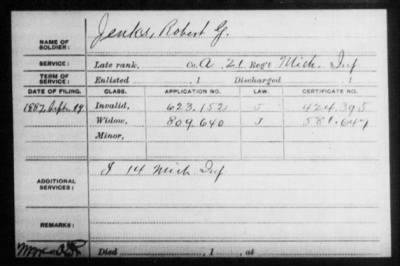 NAME OF SOLDIER: Jenks, Robert G.
SERVICE: Late rank, Co. A, 21 Reg't Mich. Inf
TERM OF SERVICE: Enlisted , 1 Discharged , 1
DATE OF FILING. CLASS. APPLICATION NO. LAW. CERTIFICATE NO.
1887, Sept. 19 Invalid, 623.152 J 424.395
Widow, 809.640 J 581.647
Minor,
ADDITIONAL SERVICES: I 14 Mich Inf
REMARKS:
Died , 1 , at